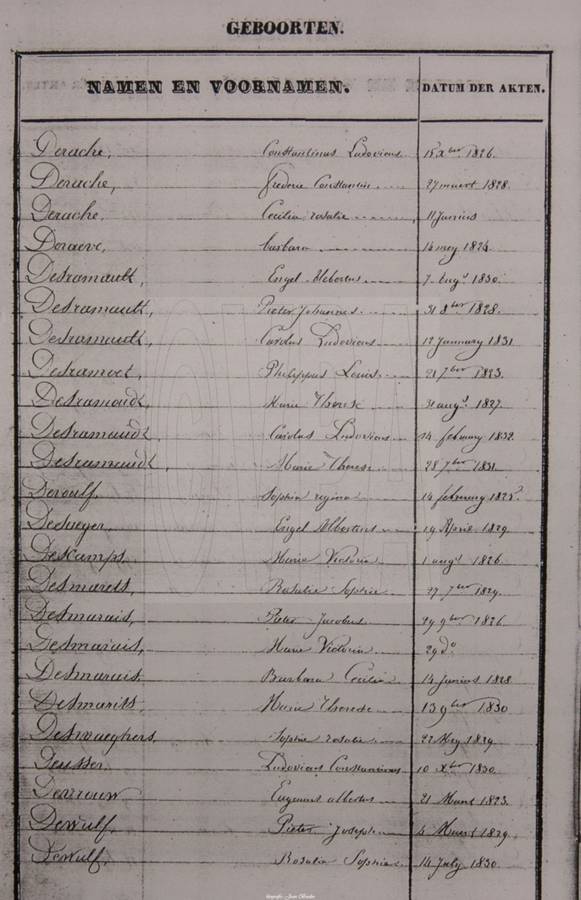 GEBOORTEN.
NAMEN EN VOORNAMEN. DATUM DER AKTEN.
Derache, Constantinus Ludovicus 15 Xber 1826.
Derache, Frederic Constantin 27 maert 1828.
Derache, Cecilia rosalie 11 Junius
Deraeve, barbara 14 mey 1824
Desramault, Engel Albertus 7 Augt 1830.
Desramault, Pieter Johannes 31 8ber 1828.
Desramault, Carolus Ludovicus 12 January 1831
Desramoet, Philippus Louis 21 7ber 1823.
Desramoudt, Marie Therese 31 augt 1827.
Desramaudt, Carolus Ludovicus 14 february 1832.
Desramaudt, Marie Therese 28 7ber 1831.
Deroulf, Sophia regina 14 february 1825.
Engel Albertus 19 April 1829.
Descamps, Maria Victoria 1 augt 1826
Desmarets, Rosalie Sophie 27 7ber 1829.
Desmarais, Pieter Jacobus 29 9ber 1826
Desmarais, Marie Victoria 29 do
Desmarais, Barbara Cecilia 14 junius 1828
Desmarits, Marie Therese 13 9ber 1830
Desmaeghers, Sophie rosalie 22 Mey 1829.
Ludovicus Constantinus 10 Xber 1830.
Eugenius albertus 21 Maert 1823.
Dewulf, Pieter Joseph 4 Maert 1829.
Dewulf, Rosalie Sophie 14 July 1830.